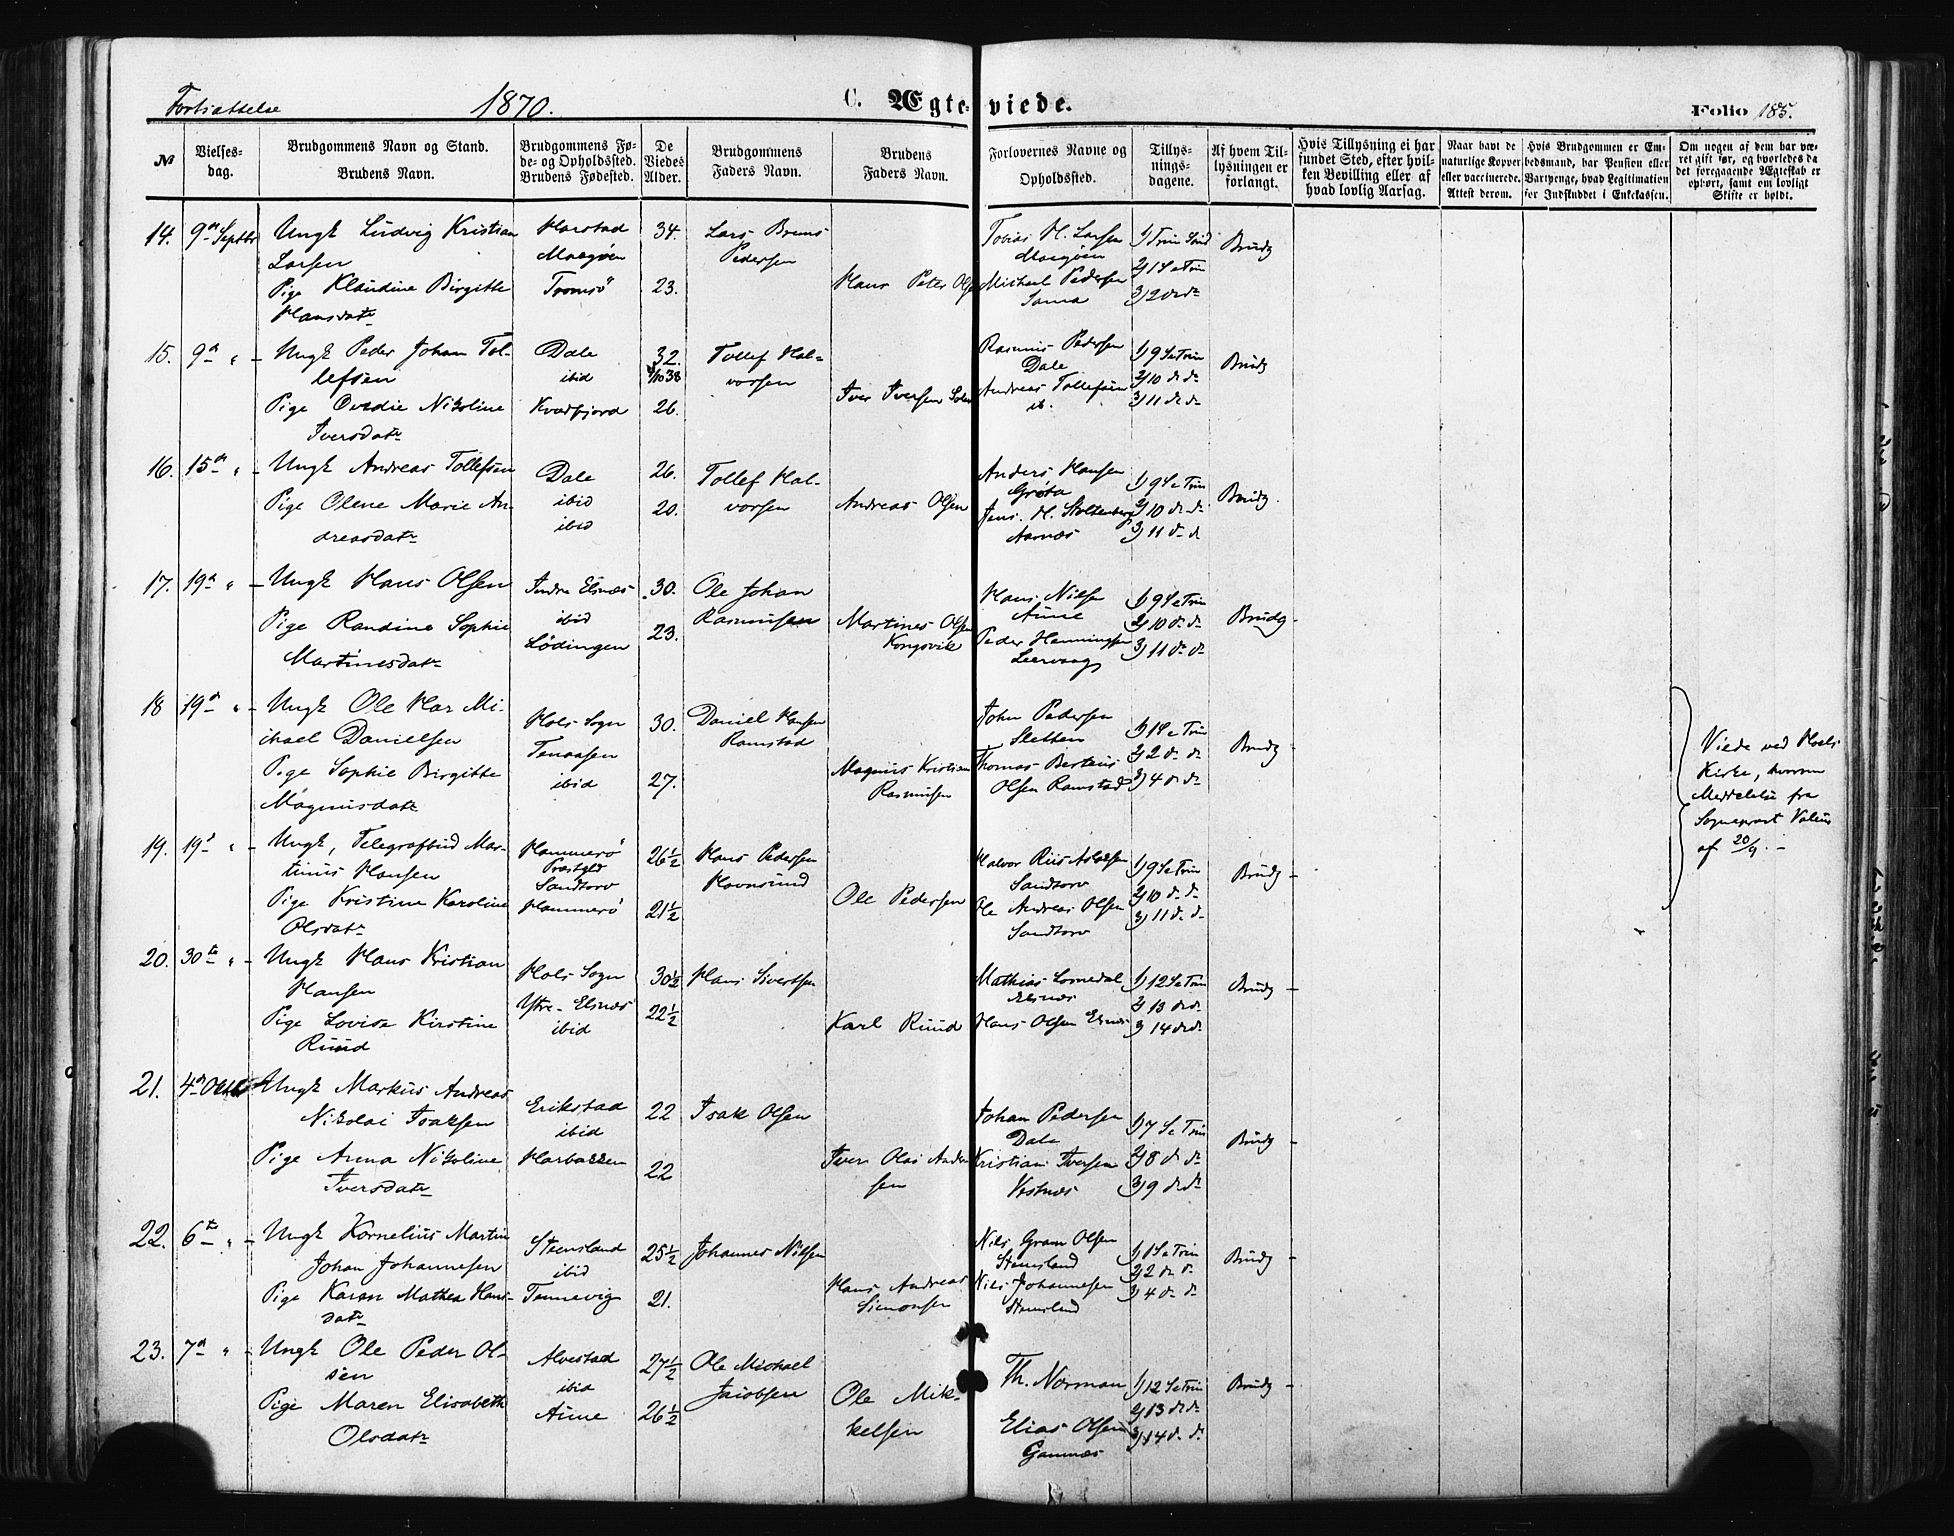 Fortsættelse 1870. C. Ægteviede. Folio 185.
№
Vielses-
dag.
Brudgommens Navn og Stand.
Brudens Navn.
Brudgommens Fø-
de- og Opholdssted.
Brudens Fødested.
De
Viedes
Alder.
Brudgommens
Faders Navn.
Brudens
Faders Navn.
Forlovernes Navne og
Opholdssted.
Tillys-
nings-
dagene.
Af hvem Til-
lysningen er
forlangt.
Hvis Tillysning ei har
fundet Sted, efter hvil-
ken Bevilling eller af
hvad lovlig Aarsag.
Naar havt de
naturlige Kopper
eller vaccinerede.
Attest derom.
Hvis Brudgommen er Em-
bedsmand, har Pension eller
Vartpenge, hvad Legitimation
for Indskuddet i Enkekassen.
Om nogen af dem har væ-
ret gift før, og hvorledes da
det foregaaende Ægteskab er
ophørt, samt om lovligt
Skifte er holdt.
14. 9de Septbr
Ungk Ludvig Kristian
Larsen
Pige Klaudine Birgitte
Hansdatr
Harstad
Tromsö
34.
23.
Lars Brems
Pedersen
Hans Peter Olsen
Tobias H. Larsen
Michael Pedersen
Sama
Brudg
15. 9de " -
Ungk Peder Johan Tol-
lefsen
Pige Ovedie Nikoline
Iversdatr
Dale
ibid
Kvædfjord
32.
26.
Tollef Hal-
vorsen
Iver Iversen
Rasmus Pedersen
Dale
Andreas Tollefsen
ib.
1) 9 S e Trin
2) 10 d. d.
3) 11 d. d.
Brudg
16. 15de " -
Ungk Andreas Tollefsen
Pige Olene Marie An-
dreasdatr
Dale
ibid
ibid
26.
20.
Tollef Hal-
vorsen
Andreas Olsen
Anders Hansen
Grøta
Jens. H. Stoltenberg
Aarnæs
1) 9 S e Trin
2) 10 d. d.
3) 11 d. d.
Brudg.
17. 19de " -
Ungk Hans Olsen
Pige Randine Sophie
Martinesdatr
Indre Elsnæs
ibid
Lødingen
30.
23.
Ole Johan
Rasmussen
Martines Olsen
Kongsvik
Hans Nilsen
Aune
Peder Henningsen
Leervaag
1) 9 S e Trin
2) 10 d. d.
3) 11 d. d.
Brudg-
18 19de " -
Ungk Ole Har Mi-
ikael Danielsen
Pige Sophie Birgitte
Magnusdatr
Hols Sogn
Tenaasen
ibid
30.
27.
Daniel Hansen
Ramstad
Magnus Kristian
Rasmusen
John Pedersen
Sletten
Thomas Berteus
Olsen Ramstad
1) 1 S e Trin
2) 2 d. d.
3) 4 d. d.
Brudg -
Viede ved Hols
Kirke, hvorom
Meddelelse fra
Sogneprest
af 20/9. -
19. 19de " -
Ungk, Telegrafbud Mar-
tinus Hansen
Pige Kristine Karoline
Olsdatr
Hammerö
Præstgld
Sandtorv
Hammerö
26½
21½
Hans Pedersen
Havnsund
Ole Pedersen
Halvor Riis
Sandtorv
Ole Andreas Olsen
Sandtorv
1) 9 S e Trin
2) 10 d. d.
3) 11 d. d.
Brudg -
20. 30te " -
Ungk Hans Kristian
Hansen
Pige Lovise Kirstine
Ruud
Hols Sogn
Ytre-Elsnæs
ibid
30½
22½
Hans Sivertsen
Karl Ruud
Mathias
Elsnæs
Hans Olsen Elsnæs
1) 12 S e Trin
2) 13 d. d.
3) 14 d. d.
Brudg -
21. 4de
Ungk Markus Andreas
Nikolai Isaksen
Pige Anna Nikoline
Iversdatr
Erikstad
ibid
Harbakken
22
22
Isak Olsen
Iver Olai Andre
sen
Johan Pedersen
Dale
Kristian Iversen
Vestnæs
1) 7 S e Trin
2) 8 d. d.
3) 9 d. d.
Brudg -
22. 6te " -
Ungk Kornelius Martin
Johan Johannesen
Pige Karen Mathea Hans-
datr
Steensland
ibid
Tennevig
25½
21.
Johannes Nilsen
Hans Andreas
Simonsen
Nils Gram Olsen
Stensland
Nils Johannesen
Stensland
1) 1 S e Trin
2) 2 d. d.
3) 4 d. d.
Brudg -
23. 7de " -
Ungk Ole Peder Ol-
sen
Pige Maren Elisabeth
Olsdatr
Alvestad
ibid
Aune
27½
26½
Ole Michael
Jacobsen
Ole Mik-
kelsen
Th. Norman
Elias Olsen
Gamnæs
1) 12 S e Trin
2) 13 d. d.
3) 14 d. d.
Brudg -